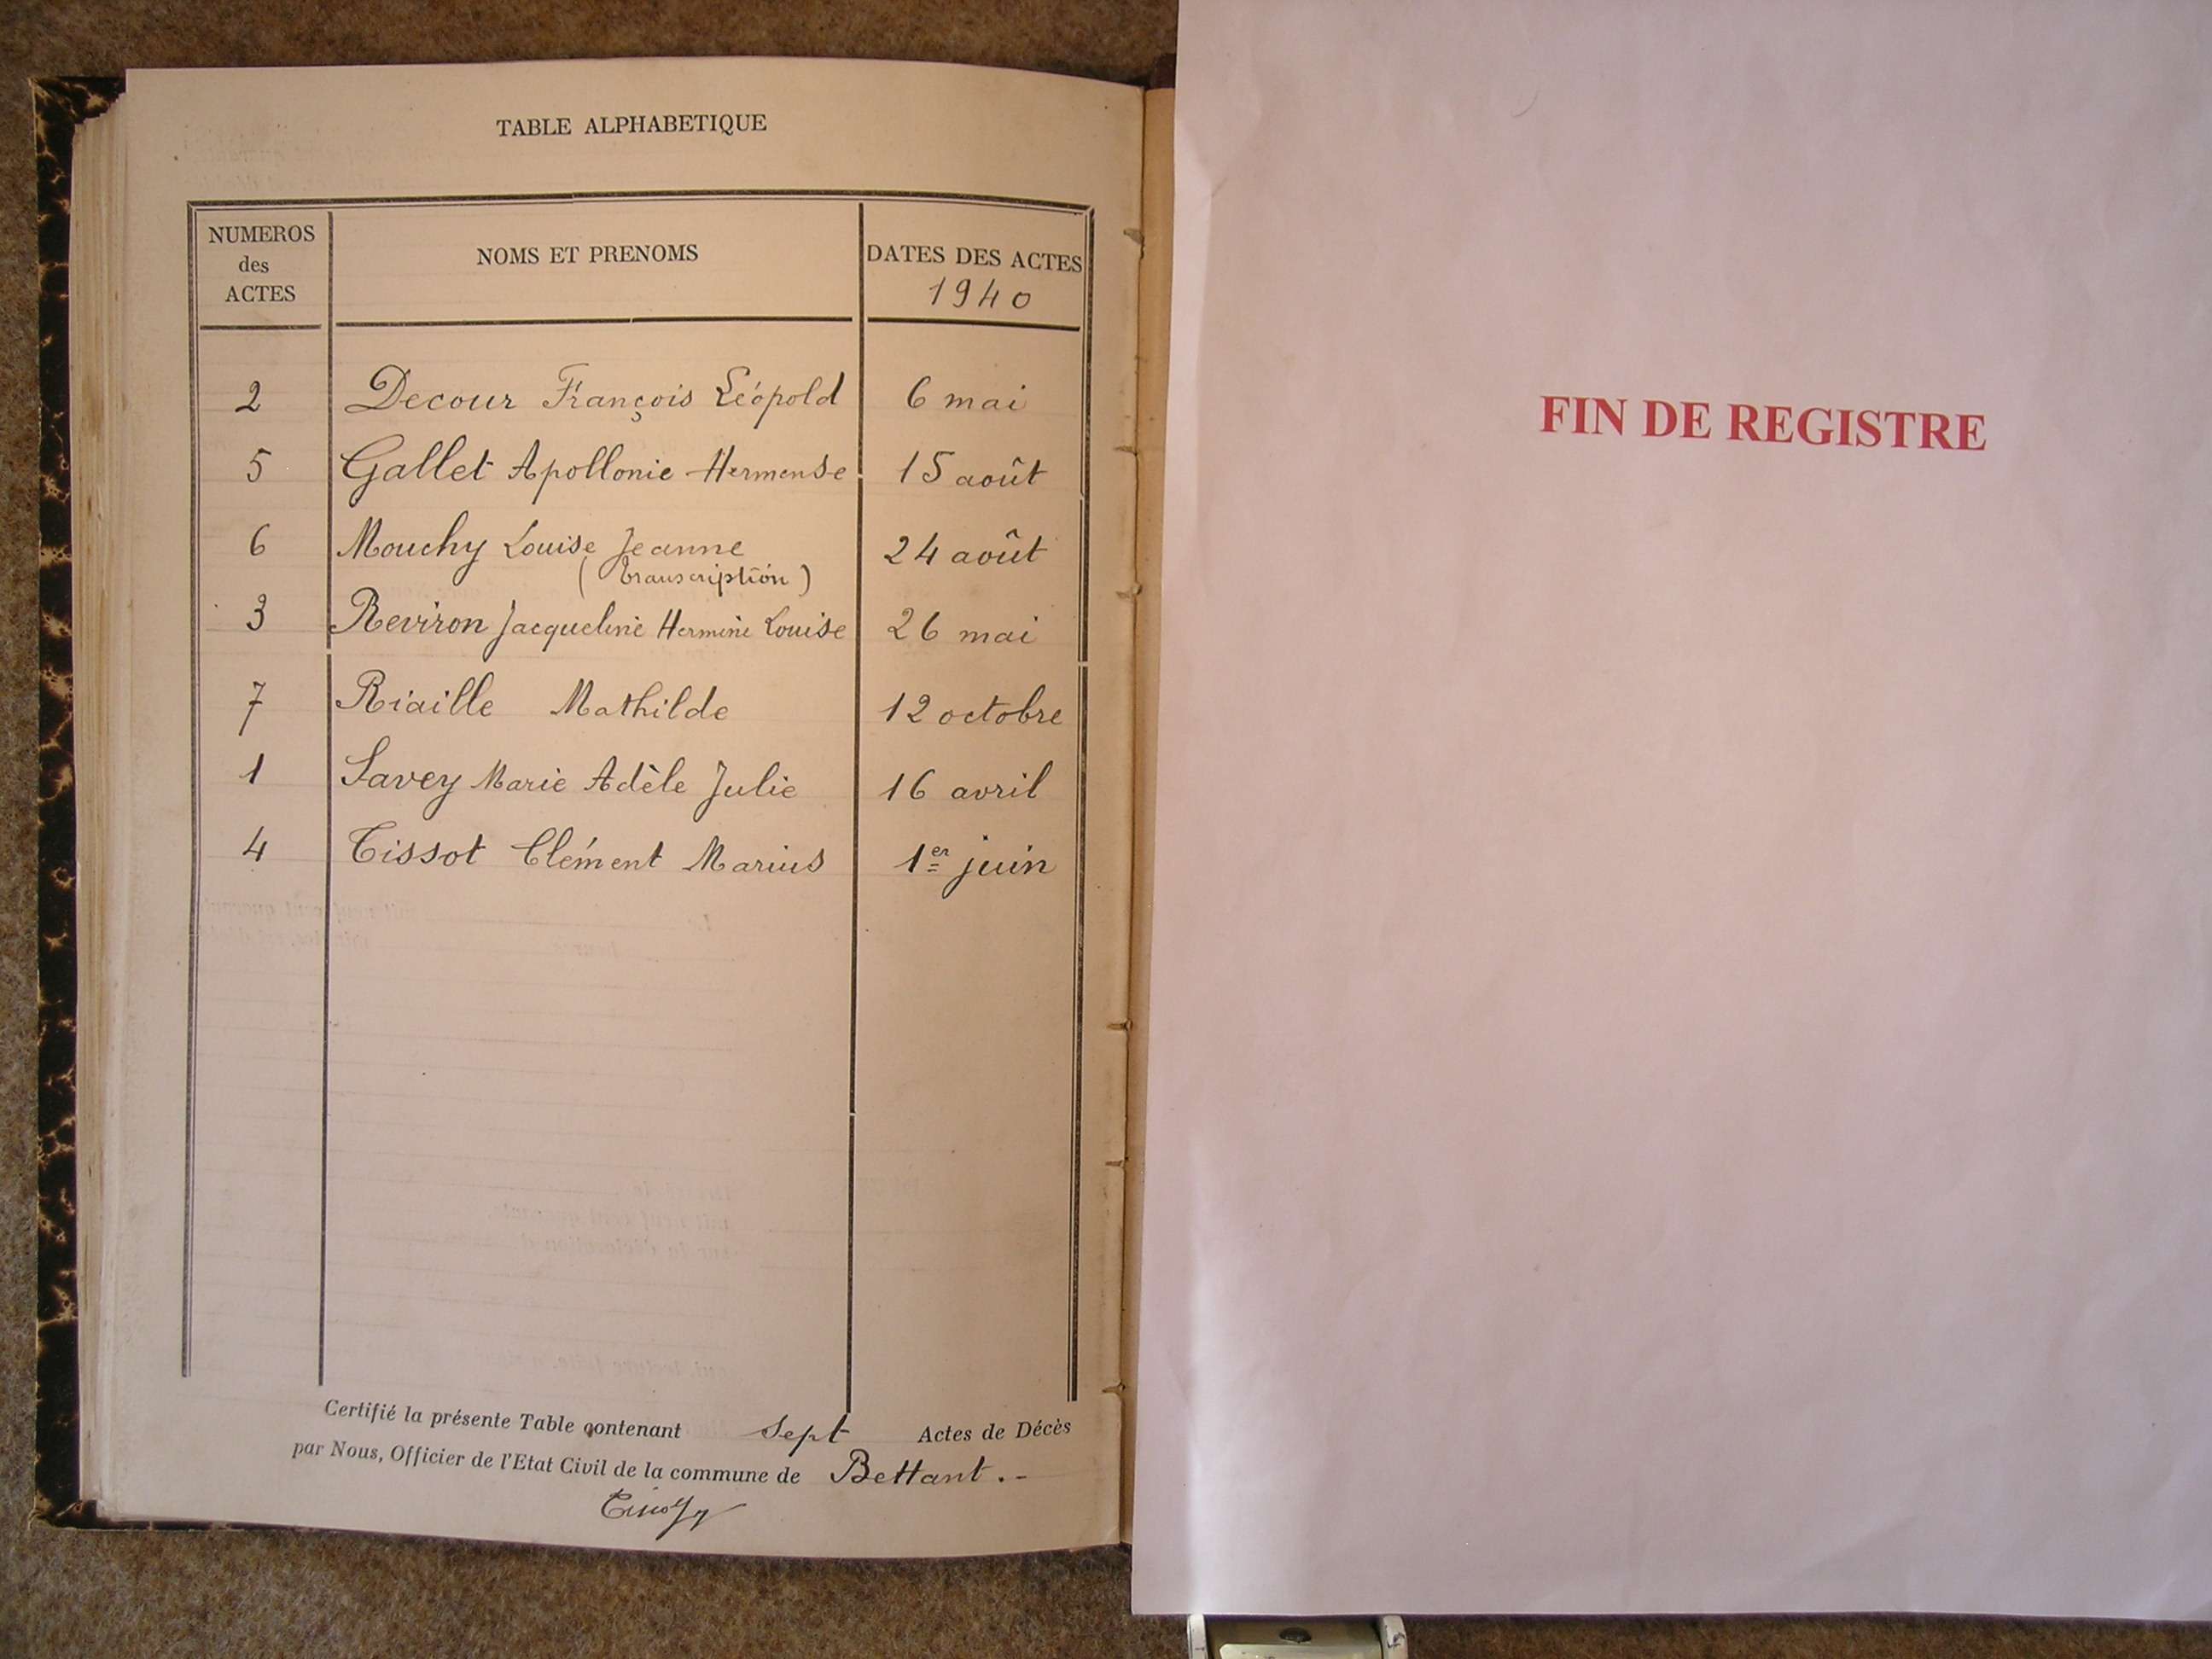 TABLE ALPHABETIQUE
NUMEROS
des
ACTES
NOMS ET PRENOMS
DATES DES ACTES
1940
2 Decour François Léopold 6 mai
5 Gallet Apollonie Hermense 15 août
6 Mouchy Louise Jeanne 24 août
(transcription)
3 Reviron Jacqueline Hermine Louise 26 mai
7 Riaille Mathilde 12 octobre
1 Savey Marie Adèle Julie 16 avril
4 Tissot Clément Marius 1er juin
Certifié la présente Table contenant sept Actes de Décès
par Nous, Officier de l'Etat Civil de la commune de Bettant.-
FIN DE REGISTRE